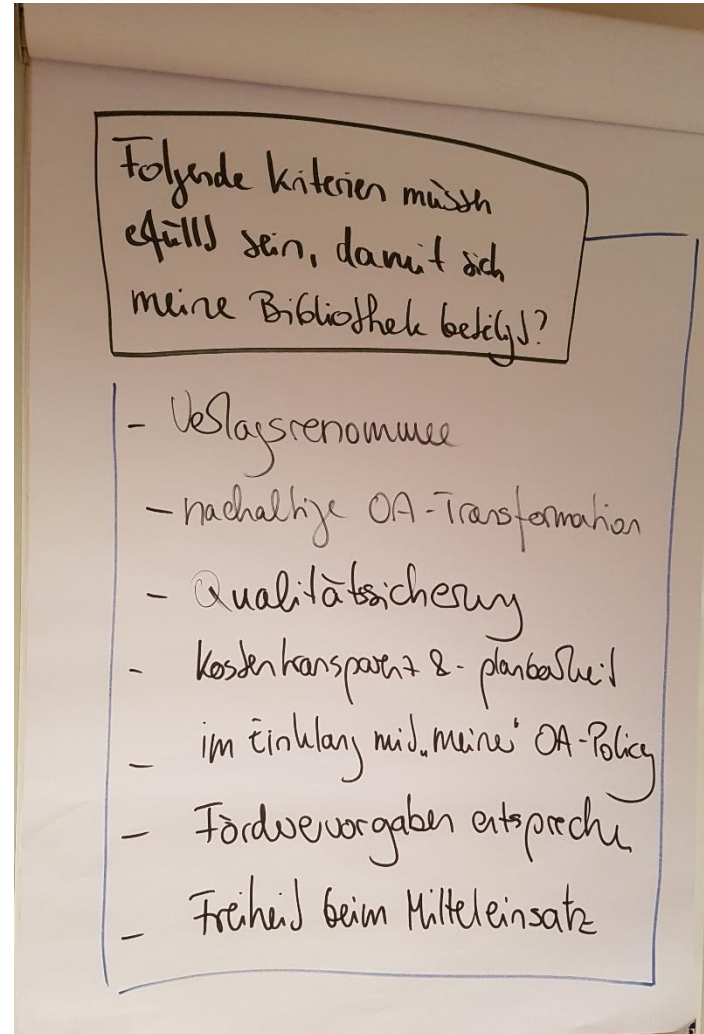 Folgende Kriterien müssen
erfüllt sein, damit sich
meine Bibliothek beteiligt?
- Verlagsrenommee
- nachhaltige OA-Transformation
- Qualitätssicherung
- Kostentransparenz & -planbarkeit
- im Einklang mit "meiner" OA-Policy
- Fördervorgaben entsprechen
- Freiheit beim Mitteleinsatz